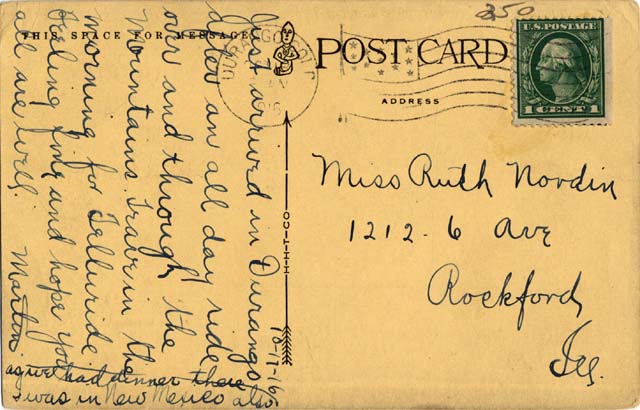 THIS SPACE FOR MESSAGE
POST CARD
ADDRESS
350
U.S. POSTAGE
1 CENT 1
DURANGO, COLO.
H-H-T-CO
Just arrived in Durango
after an all day ride
over and through the
Mountains. Leave in the
morning for Telluride
feeling fine and hope you
all are well.
Martin
10-17-16
had dinner there
was in New Mexico also.
Miss Ruth Nordin
1212-6 Ave
Rockford,
Ill.